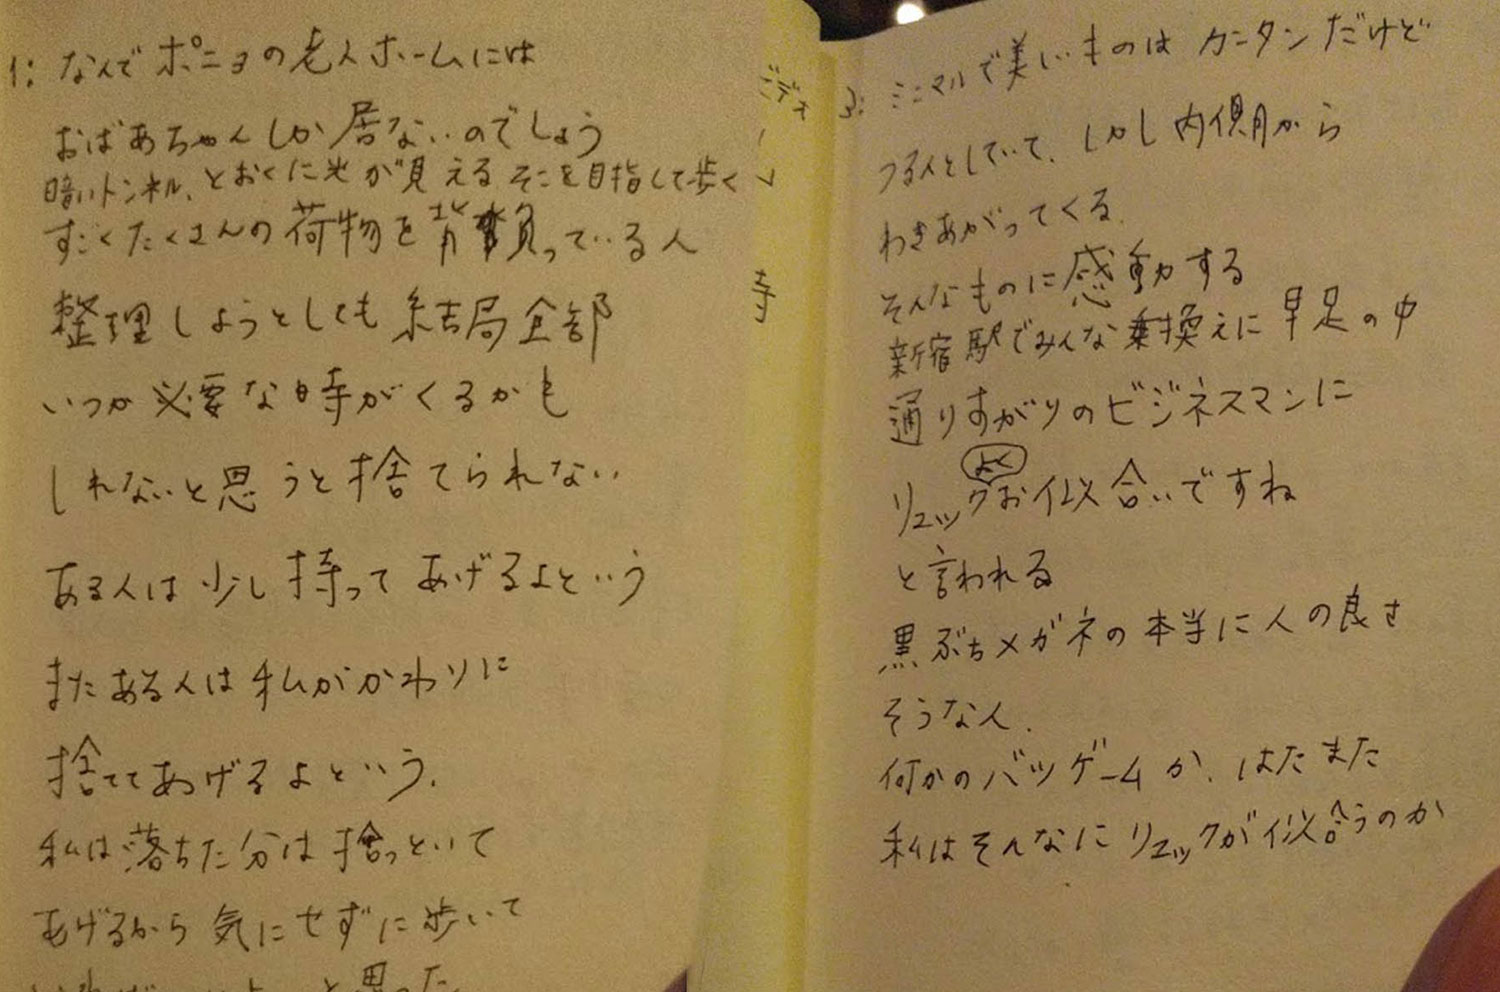 1: なんでポニョの老人ホームには
おばあちゃんしか居ないのでしょう
暗いトンネル、とおくに光が見える そこを目指して歩く
すごくたくさんの荷物を背負っている人
整理しようとしても結局全部
いつか必要な時がくるかも
しれないと思うと捨てられない
ある人は少し持ってあげるよという
またある人は私がかわりに
捨ててあげるよという.
私は落ちた分は捨っといて
あげるから気にせずに歩いて
と思った
寺
3: ミニマルで美しいものはカンタンだけど
つるんとしていて、しかし内側から
わきあがってくる.
そんなものに感動する
新宿駅でみんな乗換えに早足の中
通りすがりのビジネスマンに
よく
リュックお似合いですね
と言われる
黒ぶちメガネの本当に人の良さ
そうな人.
何かのバツゲームか、はたまた
私はそんなにリュックが似合うのか